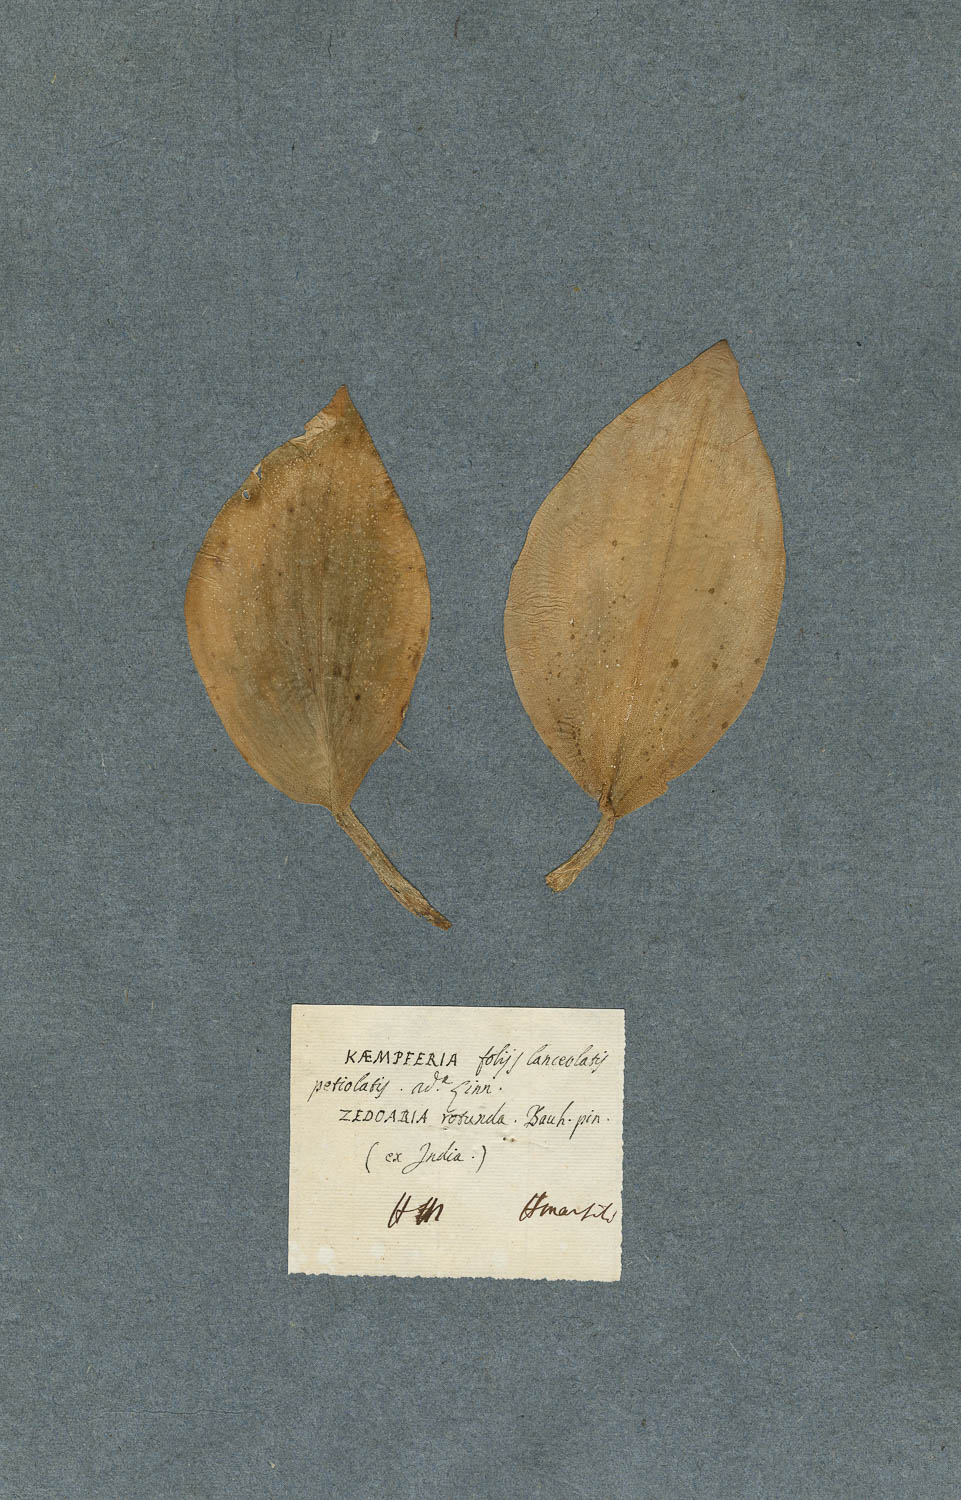 KÆMPFERIA folijs lanceolatis
petiolatis. Linn.
ZEDOARIA rotunda. Bauh. pin.
(ex India.)